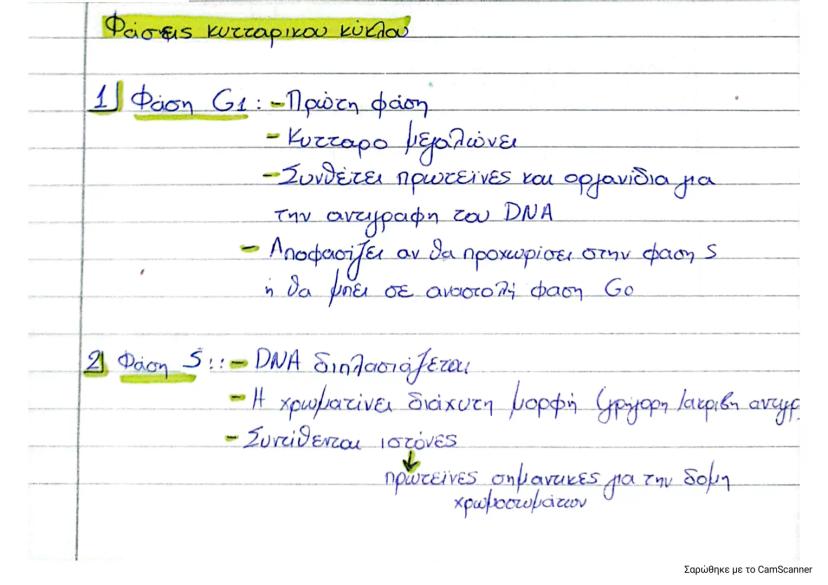 Φάσεις κυτταρικου κύκλου
1) Φάση G1: - Πρώτη φάση
- Κυτταρο μεγαλώνει
- Συνθέτει πρωτεϊνες και οργανίδια για
την αντιγραφη του DNA
- Αποφασίζει αν θα προχωρίσει στην φαση S
ή θα μπει σε αναστολή φαση G0
2) Φάση S:: - DNA διπλασιάζεται
- Η χρωματινει διάχυτη μορφή (γρήγορη/ακριβη αντιγρ
- Συντίθενται ιστόνες
πρωτεϊνες σημαντικες για την δομη
χρωμοσωμάτων
Σαρώθηκε με το CamScanner